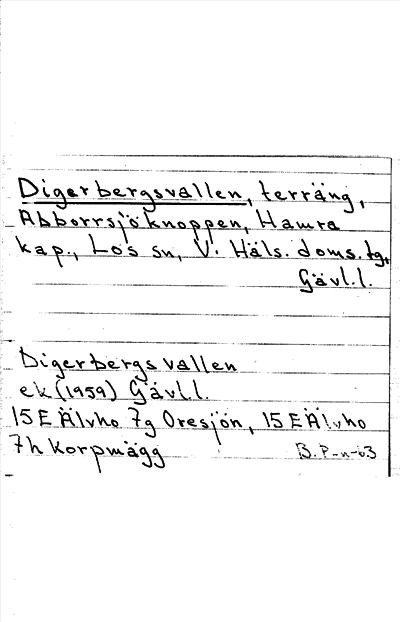 Digerbergsvallen, terräng,
Abborrsjöknoppen, Hamra
kap., Los sn, V. Häls. doms.tg,
Gävl.l.
Digerbergsvallen
ek (1959) Gävl.l.
15E Älvho 7g Oresjön, 15E Älvho
7h Korpmägg